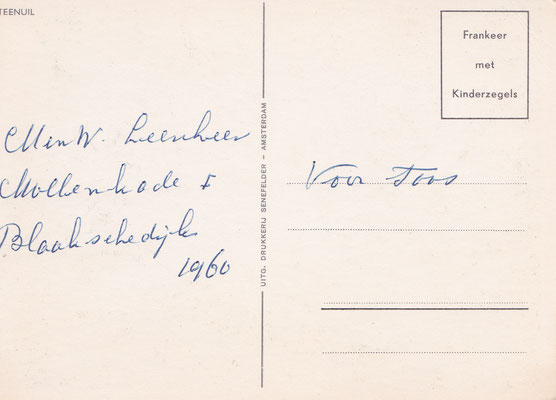 TEENUIL
Frankeer
met
Kinderzegels
W. Leenheer
Molenkade
Blaakschedijk
1960
Voor Toos
UITG. DRUKKERIJ SENEFELDER - AMSTERDAM